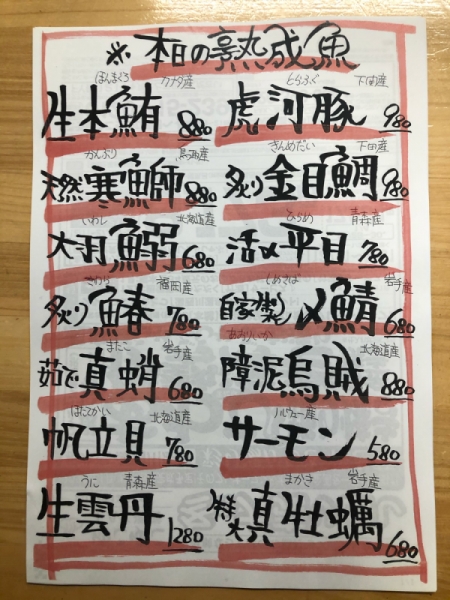 ※本日の熟成魚
ほんまぐろ カナダ産
生本鮪 880
とらふぐ 下関産
虎河豚 980
かんぶり 鳥取産
天然寒鰤 880
きんめだい 下田産
炙り金目鯛 980
いわし 北海道産
大羽鰯 680
ひらめ 青森産
活〆平目 780
さわら 福岡産
炙り鰆 780
しめさば 岩手産
自家製〆鯖 680
まだこ 岩手産
茹で真蛸 680
あおりいか 北海道産
障泥烏賊 880
ほたてかい 北海道産
帆立貝 780
ノルウェー産
サーモン 580
うに 青森産
生雲丹 1280
まかき 岩手産
特大真牡蠣 680